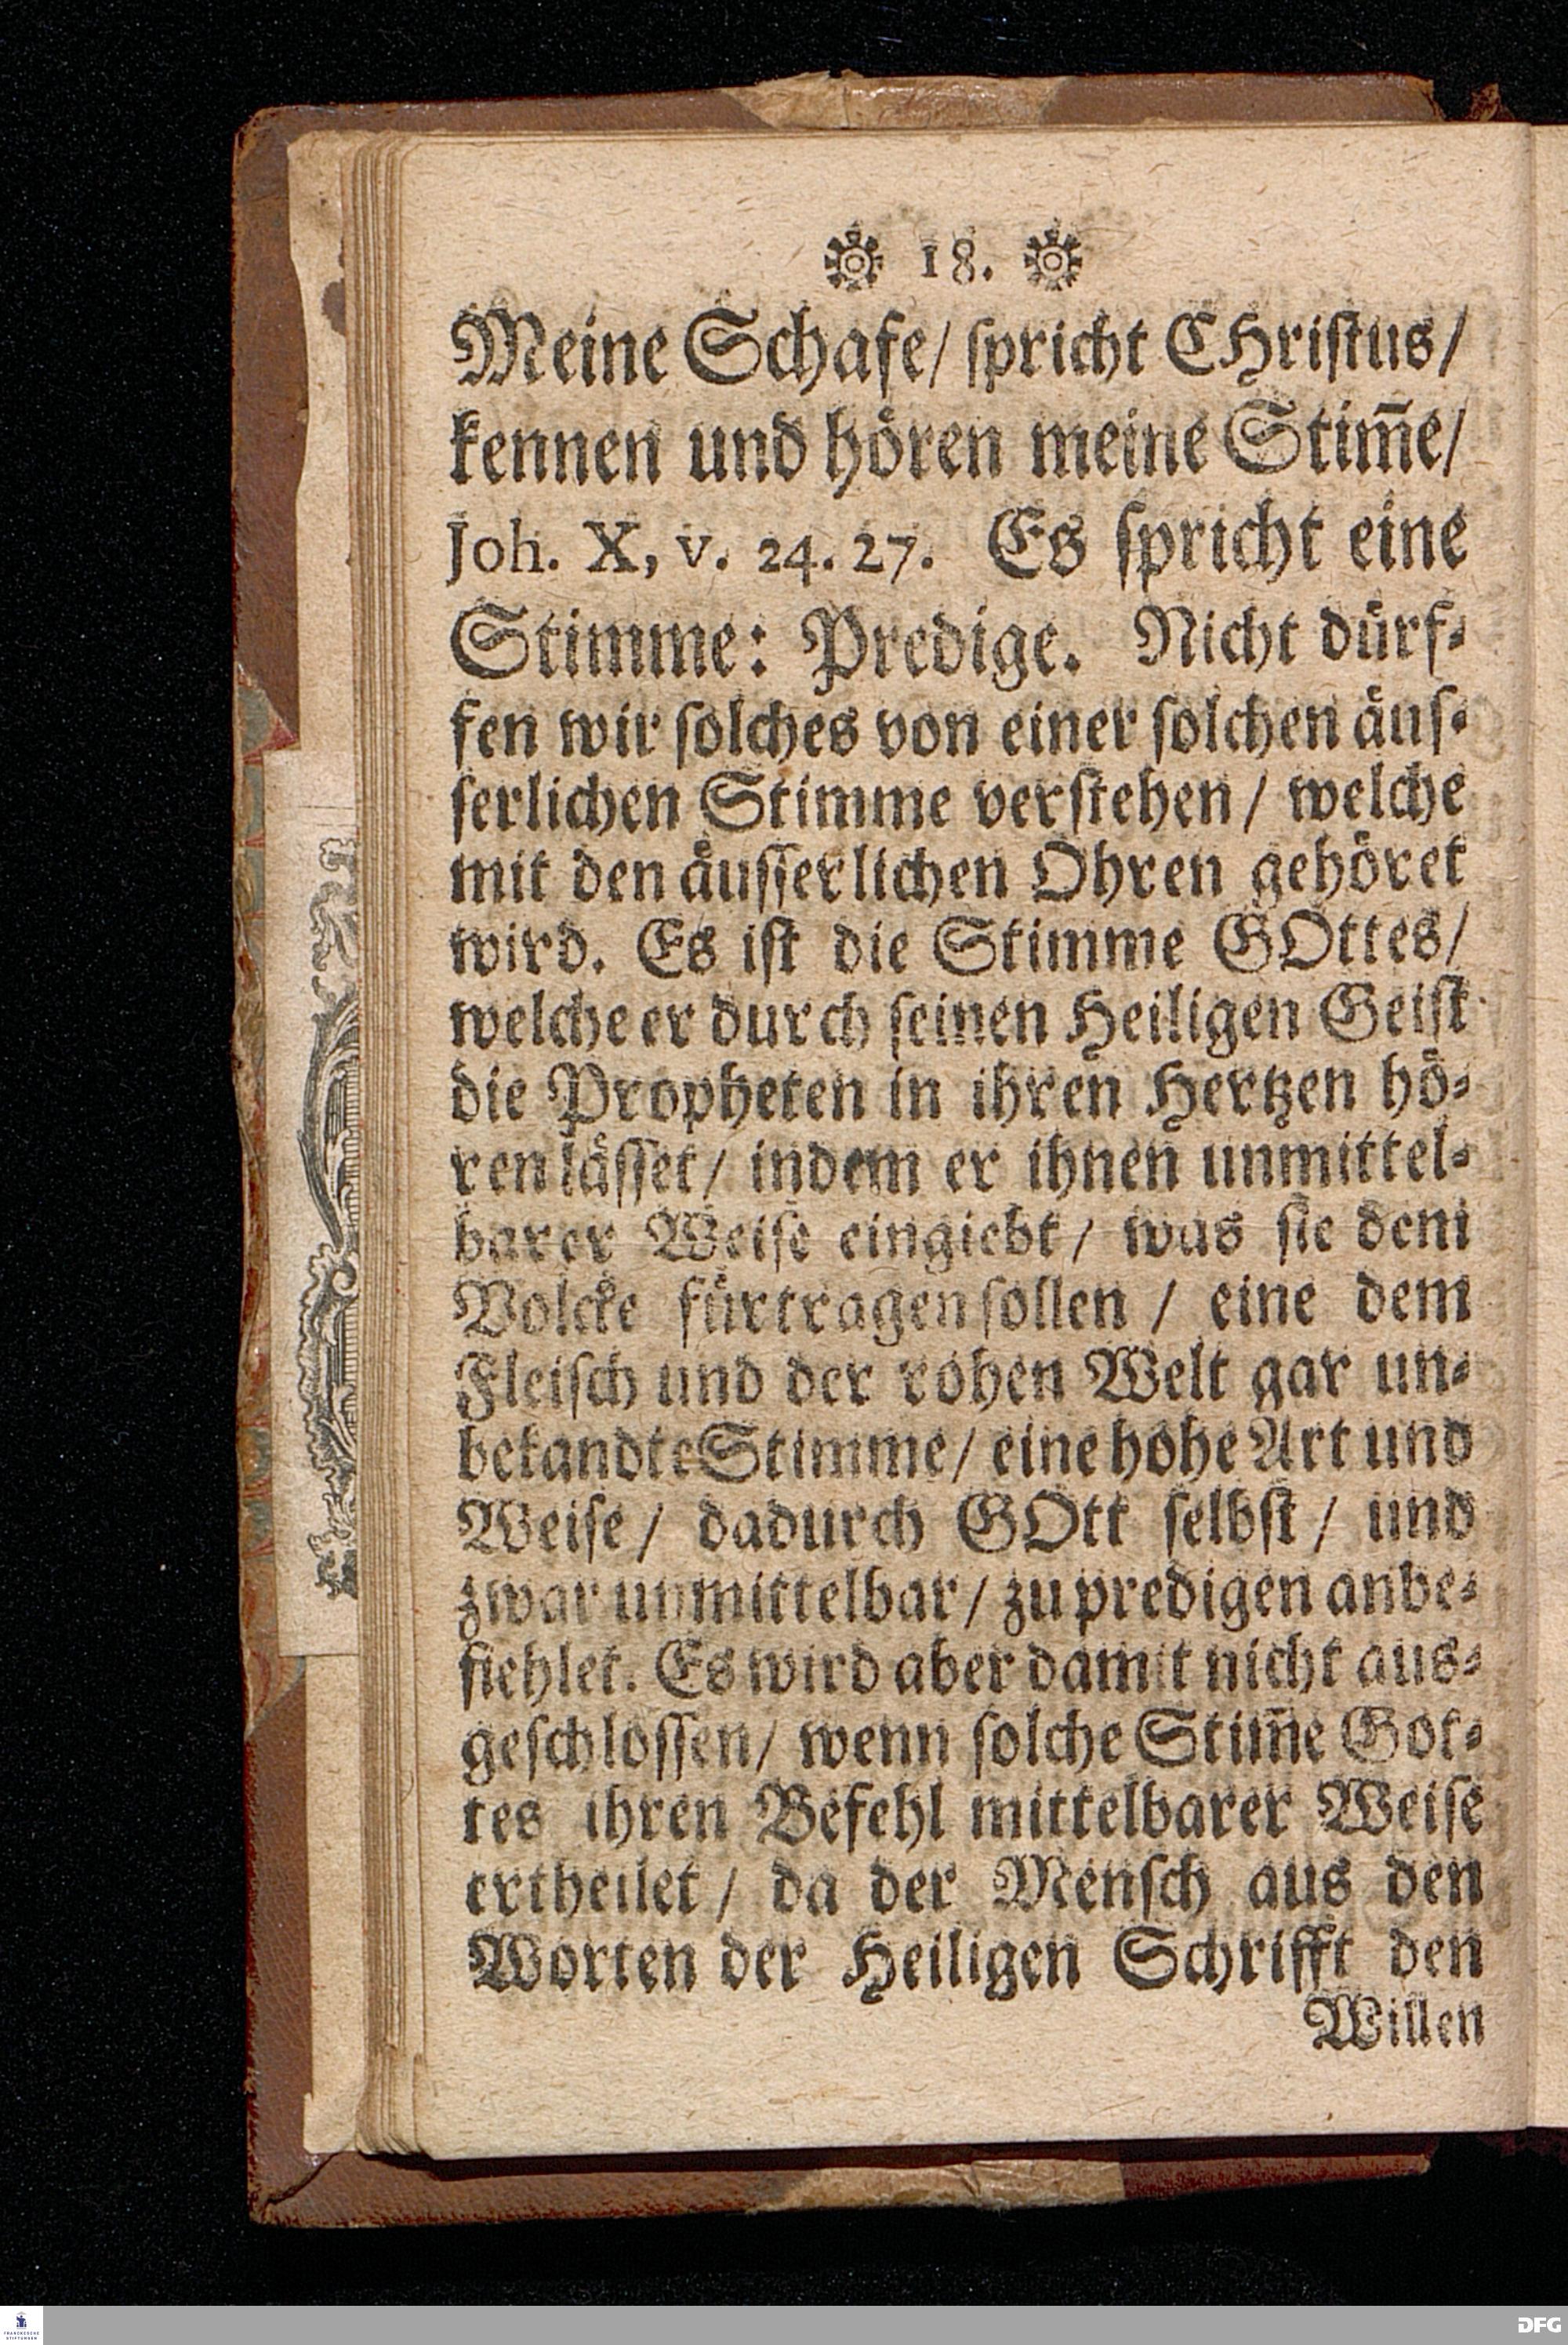 18.
Meine Schafe/ ſpricht CHriſtus/
kennen und hören meine Stim̅e/
Joh. X, v. 24. 27. Es ſpricht eine
Stimme: Predige. Nicht dürf-
fen wir ſolches von einer ſolchen äuſ-
ſerlichen Stimme verſtehen/ welche
mit den äuſſerlichen Ohren gehöret
wird. Es iſt die Stimme GOttes/
welche er durch ſeinen Heiligen Geiſt
die Propheten in ihren Hertzen hö-
ren läſſet/ indem er ihnen unmittel-
barer Weiſe eingiebt/ was ſie dem
Volcke fürtragen ſollen/ eine dem
Fleiſch und der rohen Welt gar un-
bekandte Stimme/ eine hohe Art und
Weiſe/ dadurch GOtt ſelbſt/ und
zwar unmittelbar/ zu predigen anbe-
fiehlet. Es wird aber damit nicht aus-
geſchloſſen/ wenn ſolche Stim̅e Got-
tes ihren Befehl mittelbarer Weiſe
ertheilet/ da der Menſch aus den
Worten der Heiligen Schrifft den
Willen
FRANCKESCHE
STIFTUNGEN
DFG